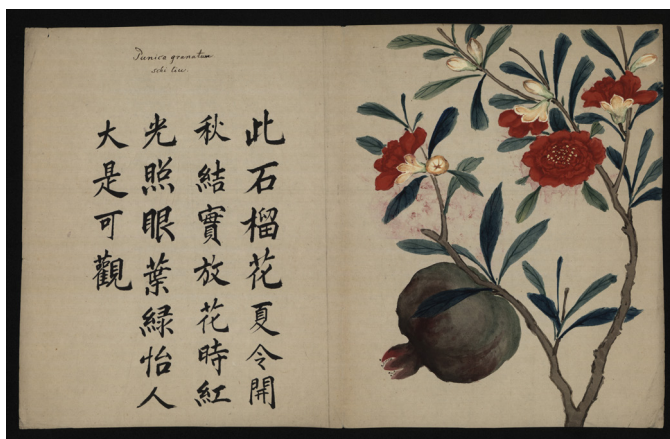 Punica granatum
schi lieu.
此石榴花夏令開
秋結實放花時紅
光照眼葉緑怡人
大是可觀